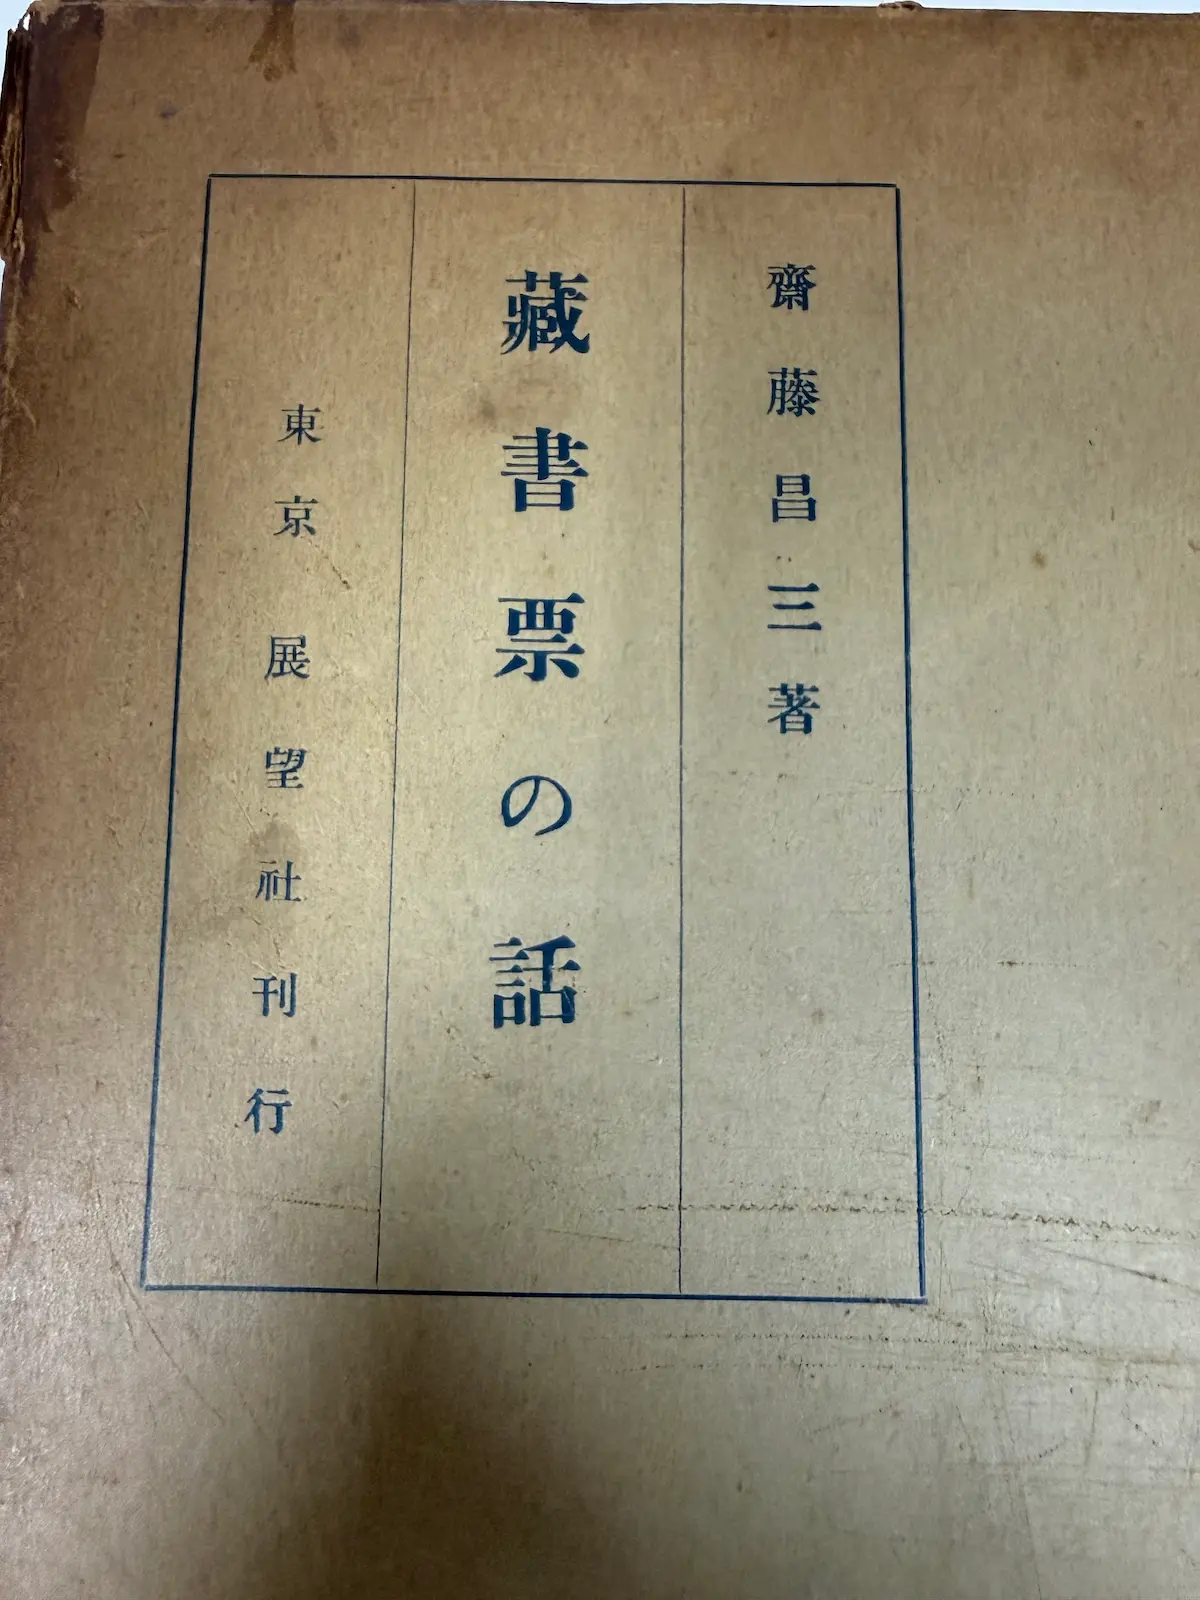 齋藤昌三著
藏書票の話
東京 展望社刊行